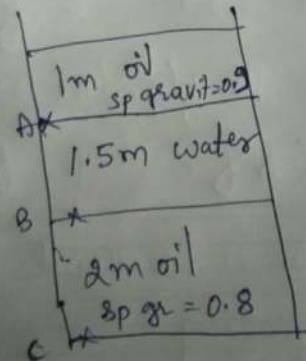 1m oil
sp gravit=0.9
A
1.5m water
B
2m oil
sp gr = 0.8
C